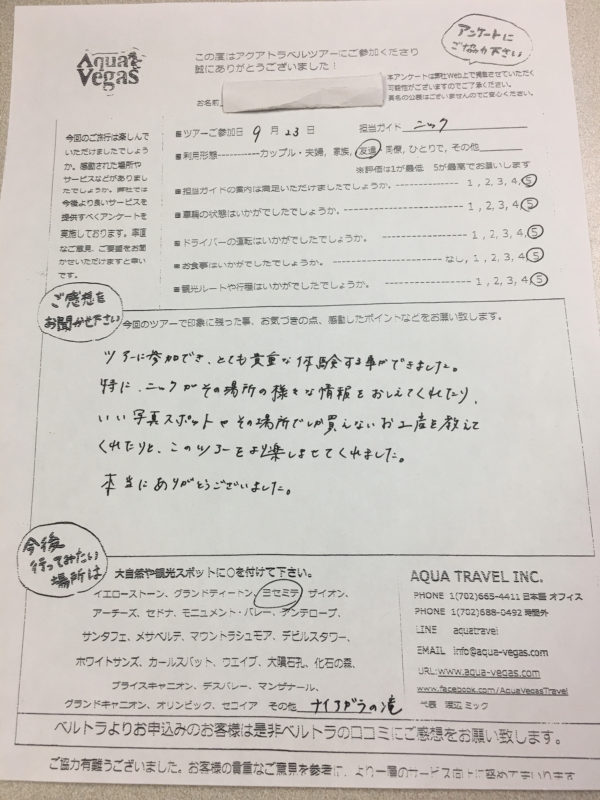 Aqua Vegas
この度はアクアトラベルツアーにご参加くださり
誠にありがとうございました！
アンケートに
ご協力下さい
本アンケートは弊社Web上で掲載させていただく
可能性がございますのでご了承ください。
真名の公表はございませんのでご安心ください。
お名前
今回のご旅行は楽しんで
いただけましたでしょう
か。感動された場所や
サービスなどがありまし
たでしょうか。弊社では
今後より良いサービスを
提供すべくアンケートを
実施しております。率直
なご意見、ご要望をお聞
かせいただけますと幸い
です。
■ツアーご参加日 9 月 23 日 担当ガイド ニック
■利用形態------------カップル・夫婦, 家族, 友達, 同僚, ひとりで, その他
※評価は1が最低 5が最高でお願いします
■担当ガイドの案内は満足いただけましたでしょうか。 1 , 2, 3, 4, 5
■車輌の状態はいかがでしたでしょうか。 1 , 2, 3, 4, 5
■ドライバーの運転はいかがでしたでしょうか。 1 , 2, 3, 4, 5
■お食事はいかがでしたでしょうか。 なし, 1, 2, 3, 4, 5
■観光ルートや行程はいかがでしたでしょうか。 1 , 2, 3, 4, 5
ご感想を
お聞かせ下さい
今回のツアーで印象に残った事、お気づきの点、感動したポイントなどをお願い致します。
ツアーに参加でき、とても貴重な体験する事ができました。
特に、ニックがその場所の様々な情報をおしえてくれたり、
いい写真スポットやその場所でしか買えないお土産を教えて
くれたりと、このツアーをより楽しませてくれました。
本当にありがとうございました。
今後
行ってみたい
場所は
大自然や観光スポットに○を付けて下さい。
イエローストーン、グランドティートン、ヨセミテ ザイオン、
アーチーズ、セドナ、モニュメント・バレー、アンテロープ、
サンタフェ、メサベルデ、マウントラシュモア、デビルスタワー、
ホワイトサンズ、カールスバット、ウエイブ、大隕石孔、化石の森、
ブライスキャニオン、デスバレー、マンザナール、
グランドキャニオン、オリンピック、セコイア その他 ナイアガラの滝
AQUA TRAVEL INC.
PHONE 1(702)665-4411 日本語 オフィス
PHONE 1(702)688-0492 時間外
LINE aquatravel
EMAIL info@aqua-vegas.com
URL:www.aqua-vegas.com
www.facebook.com/AquaVegasTravel
代表 渡辺 ミック
ベルトラよりお申込みのお客様は是非ベルトラの口コミにご感想をお願い致します。
ご協力有難うございました。お客様の貴重なご意見を参考に、より一層のサービス向上に努めてまいります